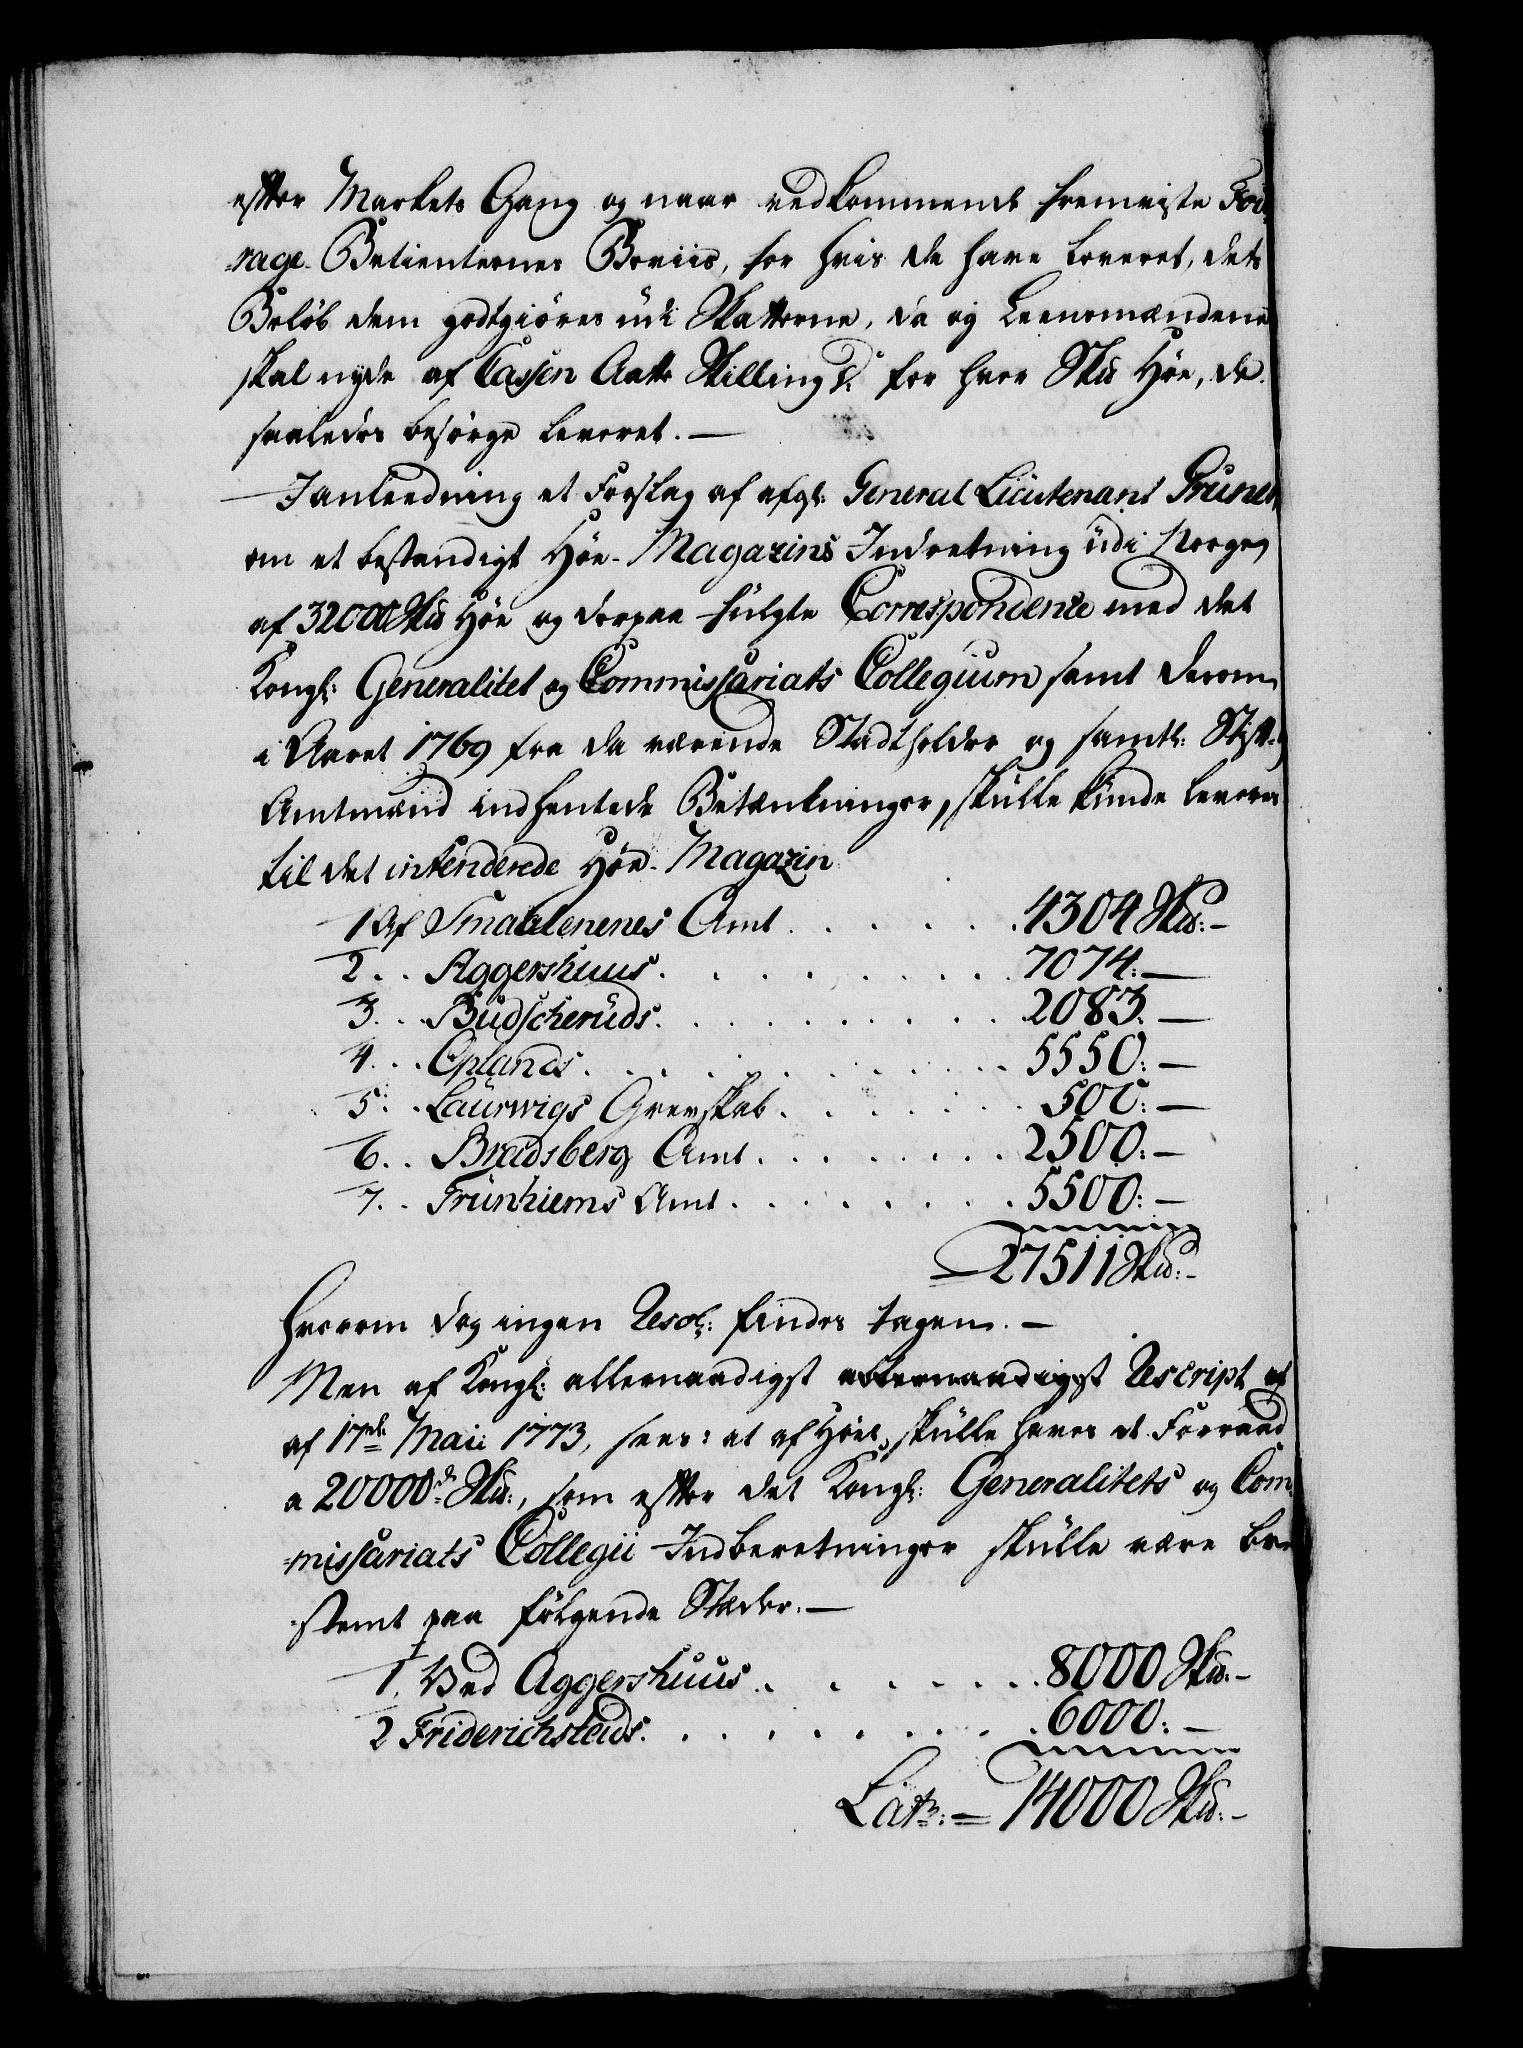 efter Markets Gang og naar vedkommende fremviste Fou-
-rage-Betienternes Beviis, for hvis de have leveret, dets
Beløb dem godtgiøres udi Skatterne, da og Leensmændene
skal nyde af Cassen Aatte Skilling d. for hver Skd Høe, de
saaledes besørge leveret. —
I anleedning et Forslag af afg: General Lieutenant Gruner
om et bestandigt Høe-Magazins Indretning udi Norge
af 32000 Skd Høe og derpaa fulgte Correspondence med det
Kongl: Generalitet og Commissariats Collegium samt derom
i Aaret 1769 fra da værende Stadtholder og samtl: Stift-
Amtmænd indhentede Betænkninger, skulle kunde leveres
til det intenderede Høe-Magazin
1 Af Smaalenenes Amt . . . . . 4304 Skd: —
2. . Aggershuus. . . . . . . . . 7074: —
3. . Budscheruds. . . . . . . . . 2083. —
4. . Oplands. . . . . . . . . . 5550: —
5. . Laurwigs Grevskab. . . . . . 500: —
6. . Bradsberg Amt. . . . . . . 2500: —
7. . Trünhiems Amt. . . . . . . 5500: —
27511 Skd: —
Hvorom dog ingen Resol: findes tagen. —
Men af Kongl: allernaadigst allernaadigst Rescript af
af 17de Maii 1773, sees: at af Høet skulle haves et Forraad
a 20000de Skd:, som efter det Kongl: Generalitets og Com-
-missariats Collegii Indberetninger skulle være be-
stemt paa følgende Stæder. —
1. Ved Aggershuus. . . . . . . 8000 Skd: —
2 Friderichstads. . . . . . . . . 6000: —
Lat: = 14000 Skd: —